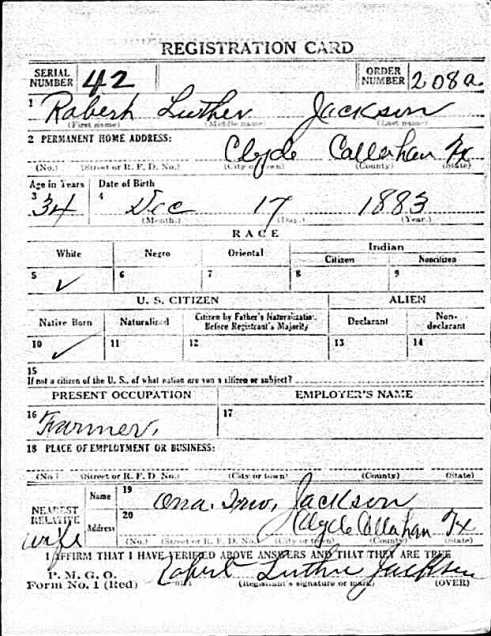 REGISTRATION CARD
SERIAL NUMBER 42 ORDER NUMBER 208a
1 Robert Luther Jackson
(First name) (Middle name) (Last name)
2 PERMANENT HOME ADDRESS:
Clyde Callahan Tx
(No.) (Street or R. F. D. No.) (City or town) (County) (State)
Age in Years Date of Birth
3 34 4 Dec 17 1883
(Month.) (Day.) (Year.)
RACE
White Negro Oriental Indian
Citizen Noncitizen
5 ✓ 6 7 8 9
U. S. CITIZEN ALIEN
Native Born Naturalized Citizen by Father's Naturalization Before Registrant's Majority Declarant Non-declarant
10 ✓ 11 12 13 14
15
If not a citizen of the U. S., of what nation are you a citizen or subject?
PRESENT OCCUPATION EMPLOYER'S NAME
16 Farmer, 17
18 PLACE OF EMPLOYMENT OR BUSINESS:
(No.) (Street or R. F. D. No.) (City or town) (County) (State)
NEAREST RELATIVE Name 19 Jackson
wife Address 20 Clyde Callahan Tx
(No.) (Street or R. F. D. No.) (City or town) (County) (State)
I AFFIRM THAT I HAVE VERIFIED ABOVE ANSWERS AND THAT THEY ARE TRUE
P. M. G. O.
Form No. 1 (Red) Robert Luther Jackson
(Registrant's signature or mark) (OVER)